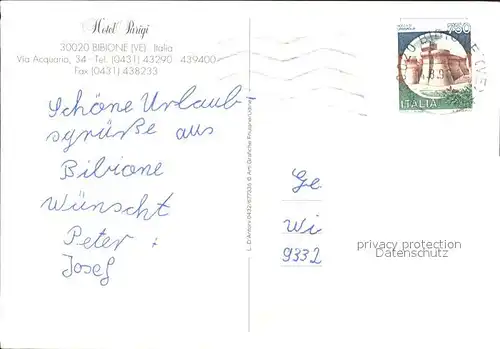 Hotel Parigi
30020 BIBIONE (VE) Italia
Via Acquario, 34 - Tel. (0431) 43290 439400
Fax (0431) 438233
750
ITALIA
Schöne Urlaub-
sgrüße aus
Bibione
Wünscht
Peter :
Josef
Ge
Wi
9332
privacy protection
Datenschutz